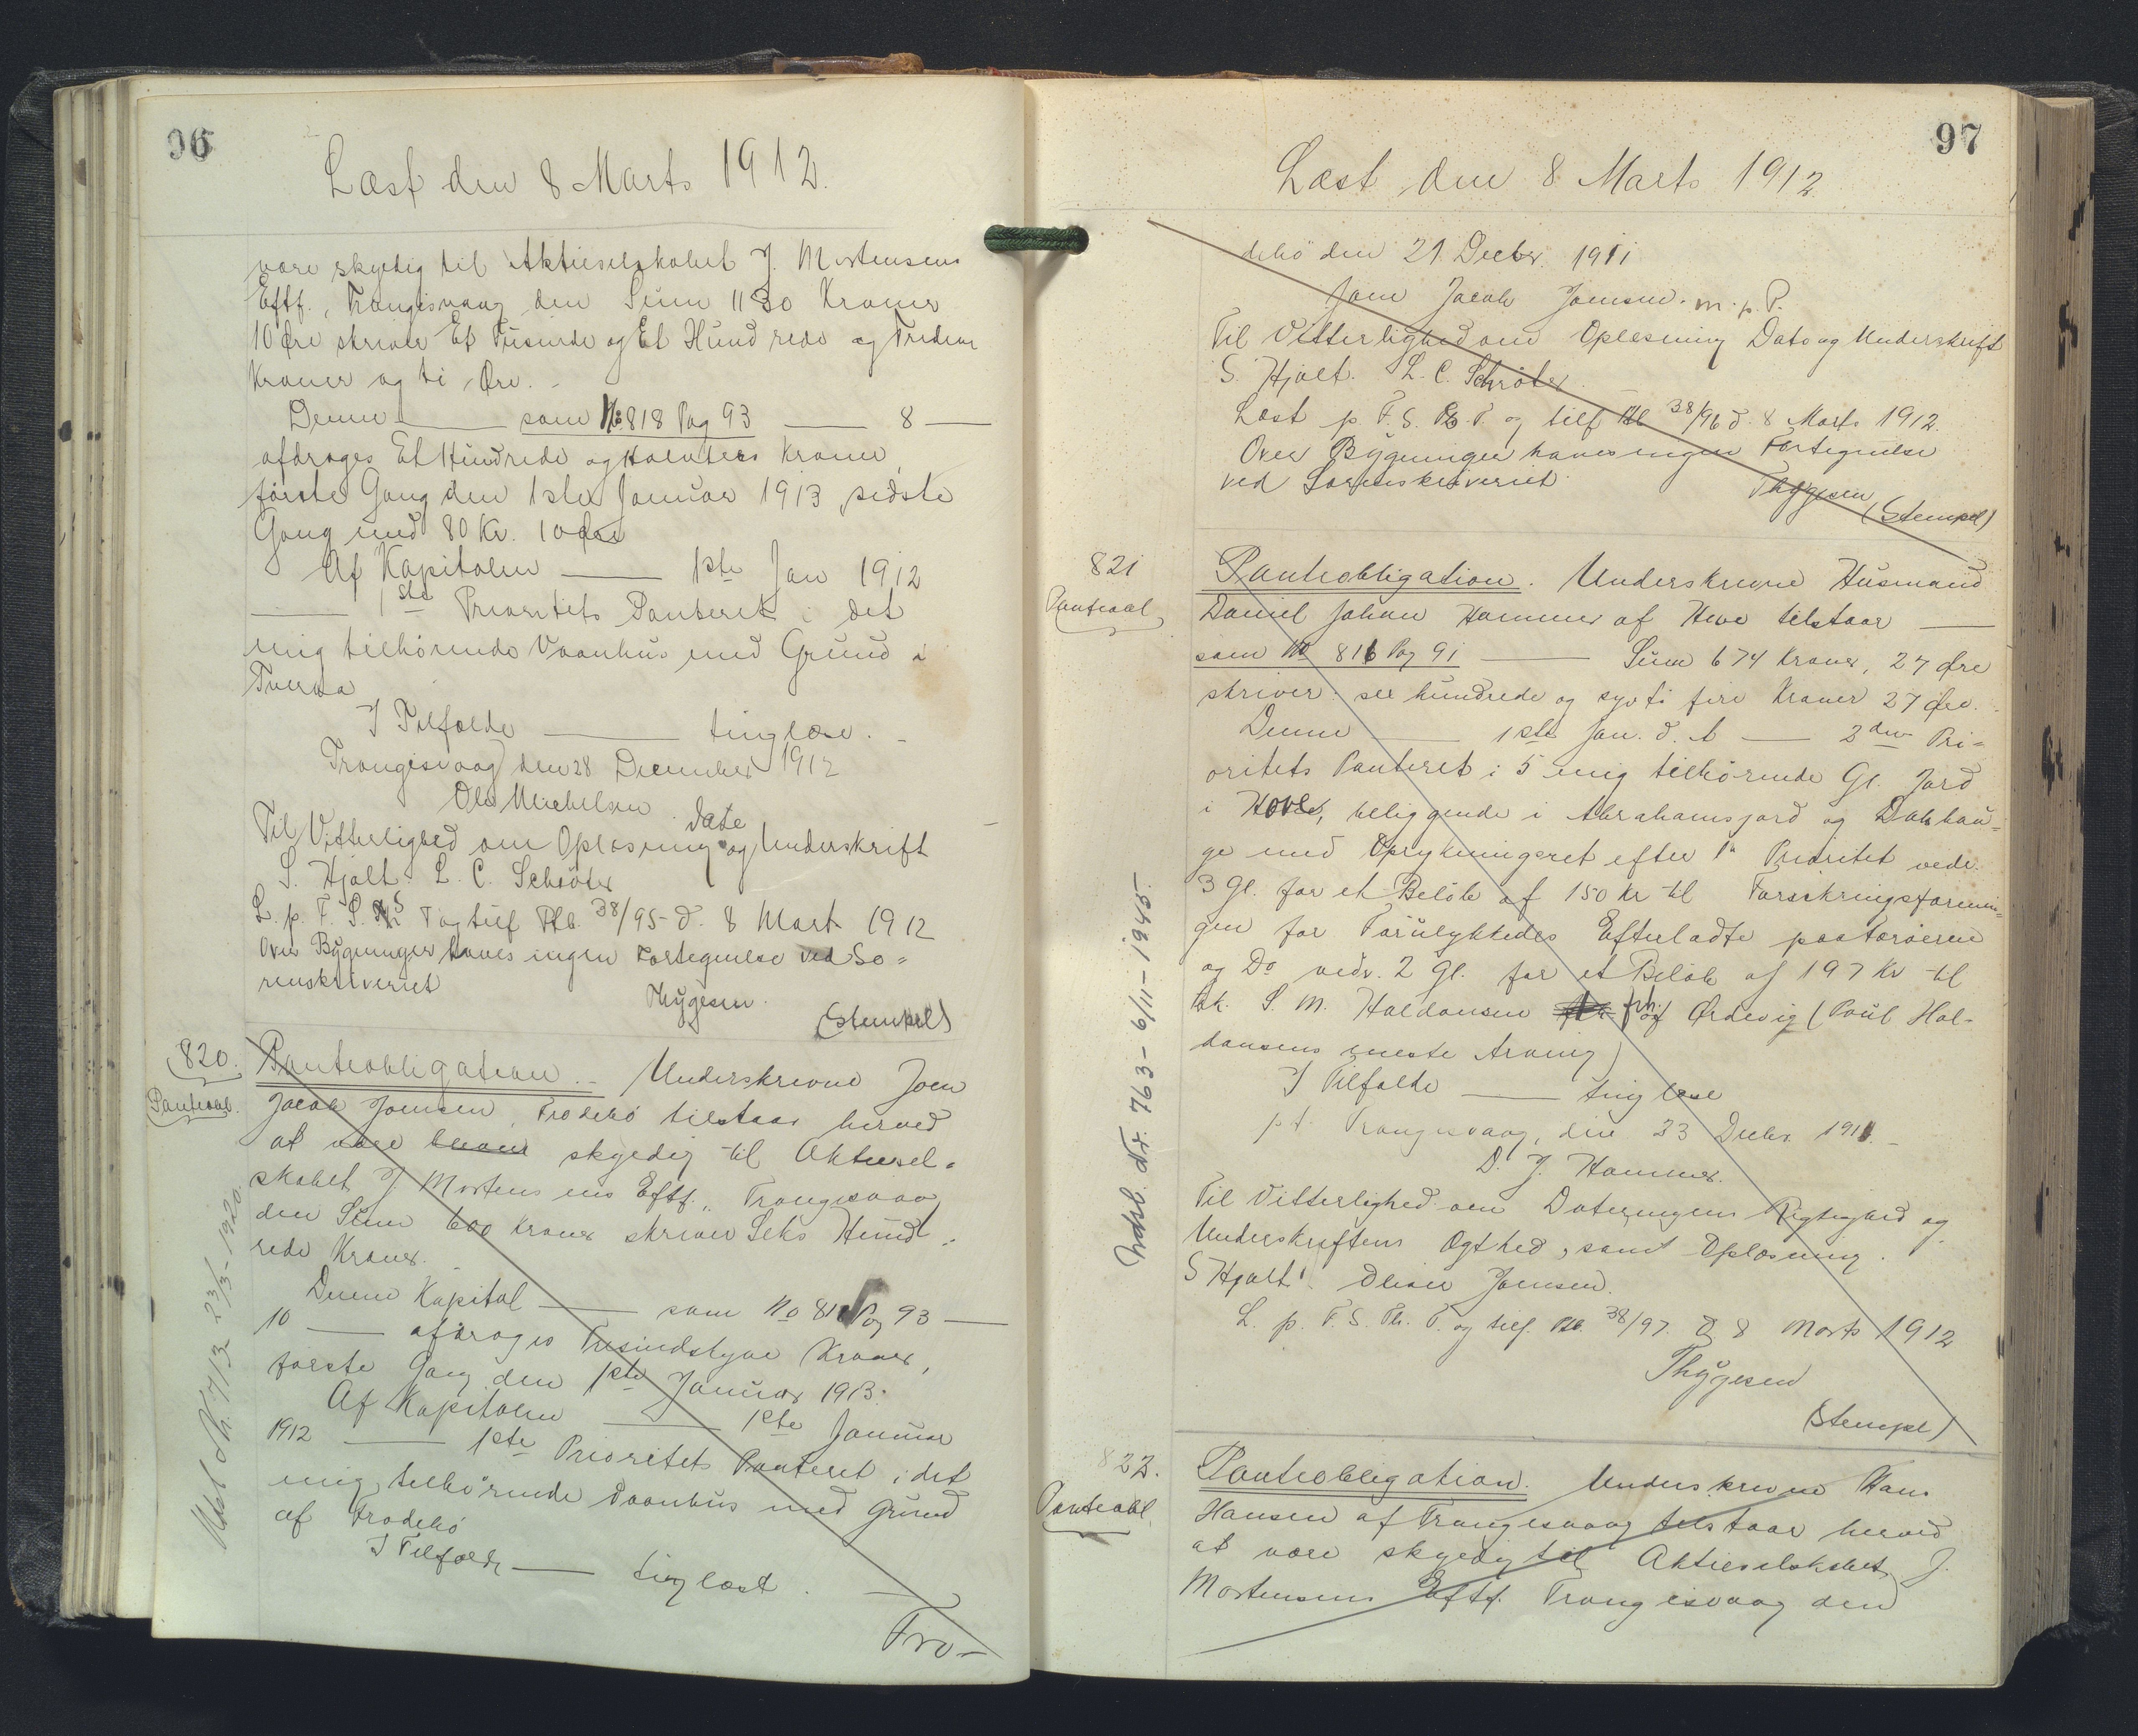 96
Læst den 8 Marts 1912.
være skyldig til Aktieselskabet J. Mortensens
Eftf., Trangisvaag den Sum 1130 Kroner
10 Øre skriver Et Tusinde og Et Hundrede og Tredive
Kroner og ti Øre. -
Denne —— som No 818 Pag 93 —— 8 ——
afdrages Et Hundrede og Halvters Kroner,
første Gang den 1ste Januar 1913, sidste
Gang med 80 Kr. 10 Øre
Af Kapitalen —— 1ste Jan 1912
—— 1ste Prioritets Panteret i det
mig tilhørende Vaanhus med Grund i
Tveraa
I Tilfælde —— tinglæse. -
Trangisvaag den 28 December 1912
Ole Michelsen
Til Vitterlighed om Oplæsning Date og Underskrift
S. Hjalt. L. C. Schrøter
L. p. F. S. Ths T og tilf Pb. 38/95 d. 8 Mart 1912
Over Bygninger haves ingen Fortegnelse ved So=
renskriveriet
Thygesen.
(Stempel)
820.
Panteobl.
Panteobligation. - Underskrevne Joen
Jacob Joensen, Frodebø tilstaar herved
at være bleven skyldig til Aktiesel=
skabet J. Mortensens Eftf., Trangisvaag
den Sum 600 Kroner skriver Seks Hund=
rede Kroner.
Denne Kapital —— som No 818 Pag 93 ——
10 —— afdrages Tresindstyve Kroner,
første Gang den 1ste Januar 1913.
Af Kapitalen —— 1ste Januar
1912 —— 1ste Prioritets Panteret i det
mig tilhørende Vaanhus med Grund
af Frodebø
I Tilfælde —— tinglæst. —
Fro-
Udsl Nr. 713 23/3-1920.
97
Læst den 8 Marts 1912
debø den 21. Decbr. 1911
Joen Jacob Joensen. m. p. P.
Til Vitterlighed om Oplæsning Dato og Underskrift
S. Hjalt. L. C. Schrøter.
Læst p. F. S. Th. T. og tilf Pb 38/96 d. 8 Marts 1912.
Over Bygninger haves ingen Fortegnelse
ved Sorenskriveriet.
Thygesen
(Stempel)
821
Panteobl,
Panteobligation. Underskrevne Husmand
Daniel Johan Hammer af Hove tilstaar ——
som No 816 Pag 91 —— Sum 674 Kroner, 27 Øre
skriver: sex hundrede og syvti fire Kroner 27 Øre.
Denne —— 1ste Jan. d. A —— 2den Pri=
oritets Panteret i 5 mig tilhørende Gl. Jord
i Hove, beliggende i Abrahamsjord og Dahlhau=
ge med Oprykningsret efter 1ª Prioritet vedr.
3 Gl. for et Beløb af 150 Kr til Forsikringsforenin=
gen for Forulykkedes Efterladte paa Færøerne
og Do vedr. 2 Gl. for et Beløb af 197 Kr til
Hk. S. M. Haldansen frh. af Ørdevig (Poul Hal-
dansens eneste Arving)
I Tilfælde —— tinglæse
p. t. Trangisvaag, den 23 Decbr. 1911. -
D. J. Hammer.
Til Vitterlighed om Dateringens Rigtighed og
Underskriftens Ægthed, samt Oplæsning.
S Hjalt. Oliver Joensen.
L. p. F. S. Th. T. og tilf. Pb. 38/97. d 8 Marts 1912
Thygesen
(Stempel)
Udsl. Nr. 763 - 6/11 - 1945.
822.
Panteobl.
Panteobligation. Underskrevne Hans
Hansen af Trangisvaag tilstaar herved
at være skyldig til Aktieselskabet J.
Mortensens Eftf. Trangisvaag den